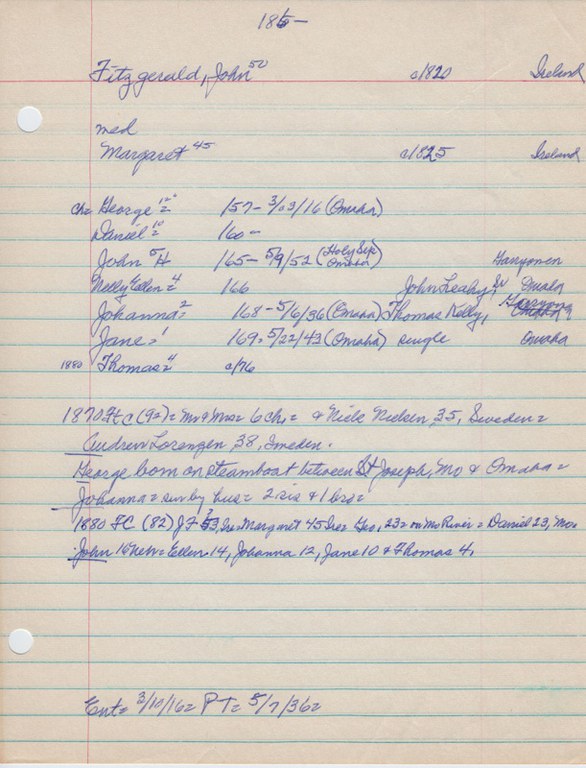 185-
Fitzgerald, John 50 c/1820 Ireland
med
Margaret 45 c/1825 Ireland
ch= George 12= /57- 3/03/16 (Omaha)
Daniel 10= /60-
John 5 H /65- 5/9/52 (Holy Sep Omaha) Harryonen
Nelly Ellen= 4 /66 John Leahy, Sr Omaha
Johanna= 2 /68-5/6/36 (Omaha) Thomas Kelly,
Jane= 1 /69= 5/22/43 (Omaha) single Omaha
1880 Thomas= 4 c/76
1870 FC (92)= Mr & Mrs= 6 ch= & Nick Nielsen, 35, Sweden=
Andrew Lorengen, 38, Sweden.
George born on steamboat between St Joseph, Mo & Omaha=
Johanna= sur by hus= 2 sis & 1 bro=
1880 FC (82) JF 53, Ire= Margaret 45 Ire= Geo, 23= on Mo River= Daniel 23, Mo.
John 16 Neb= Ellen 14, Johanna 12, Jane 10 & Thomas 4.
Ent= 3/10/16= PT= 5/7/36=